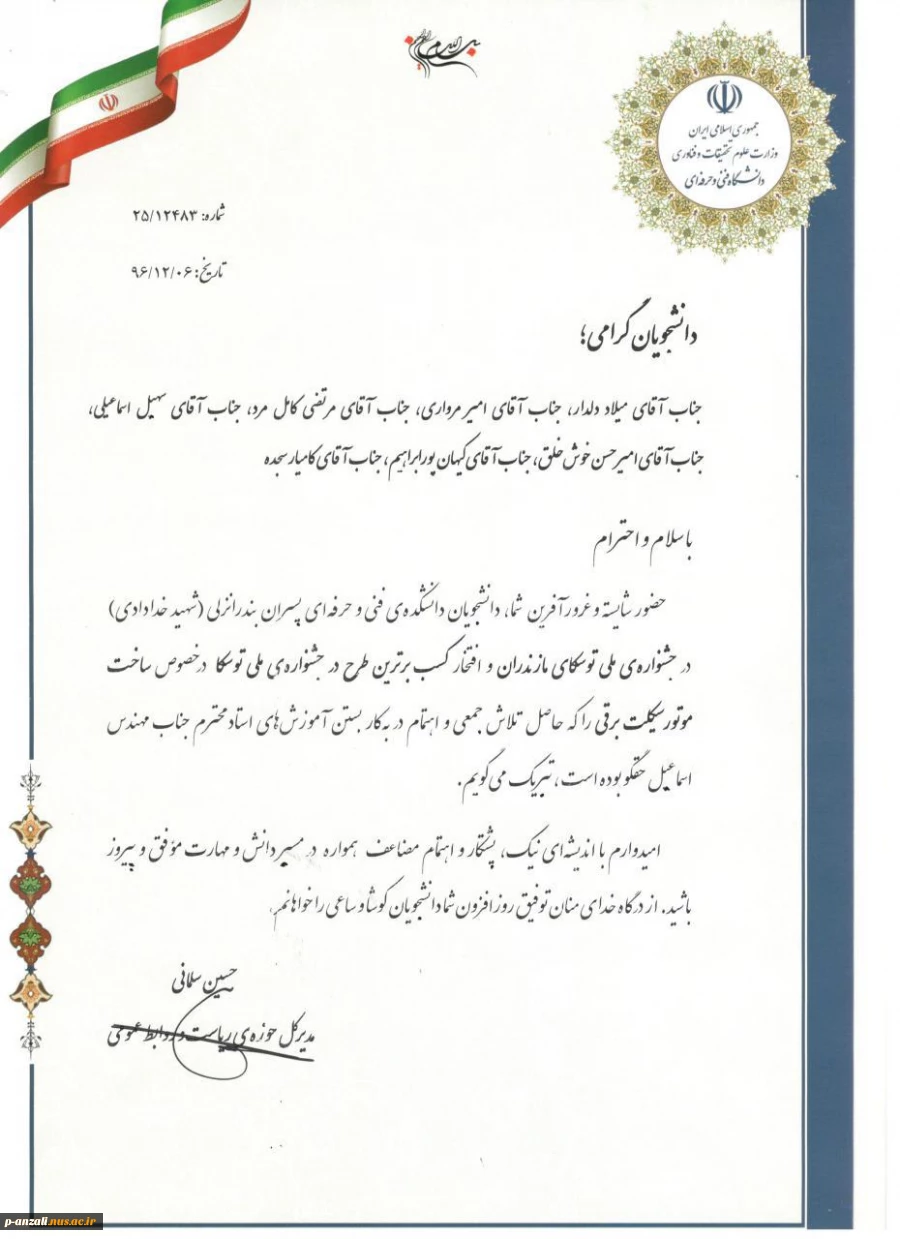 بسم الله الرحمن الرحیم
جمهوری اسلامی ایران
وزارت علوم تحقیقات و فناوری
دانشگاه فنی و حرفه‌ای
شماره: ۲۵/۱۲۴۸۳
تاریخ: ۹۶/۱۲/۰۶
دانشجویان گرامی؛
جناب آقای میلاد دلدار، جناب آقای امیر مرواری، جناب آقای مرتضی کامل مرد، جناب آقای سهیل اسماعیلی،
جناب آقای امیرحسن خوش خلق، جناب آقای کیهان پورابراهیم، جناب آقای کامیار سجده
با سلام و احترام
حضور شایسته و غرورآفرین شما، دانشجویان دانشکده‌ی فنی و حرفه‌ای پسران بندرانزلی (شهید خدادادی)
در جشنواره‌ی ملی توسکای مازندران و افتخار کسب برترین طرح در جشنواره‌ی ملی توسکا درخصوص ساخت
موتورسیکلت برقی را که حاصل تلاش جمعی و اهتمام در به‌کار بستن آموزش‌های استاد محترم جناب مهندس
اسماعیل حقگو بوده است، تبریک می‌گویم.
امیدوارم با اندیشه‌ای نیک، پشتکار و اهتمام مضاعف همواره در مسیر دانش و مهارت موفق و پیروز
باشید. از درگاه خدای منان توفیق روزافزون شما دانشجویان کوشا و ساعی را خواهانم.
حسین سلامی
مدیرکل حوزه‌ی ریاست و روابط عمومی
p-anzali.nus.ac.ir